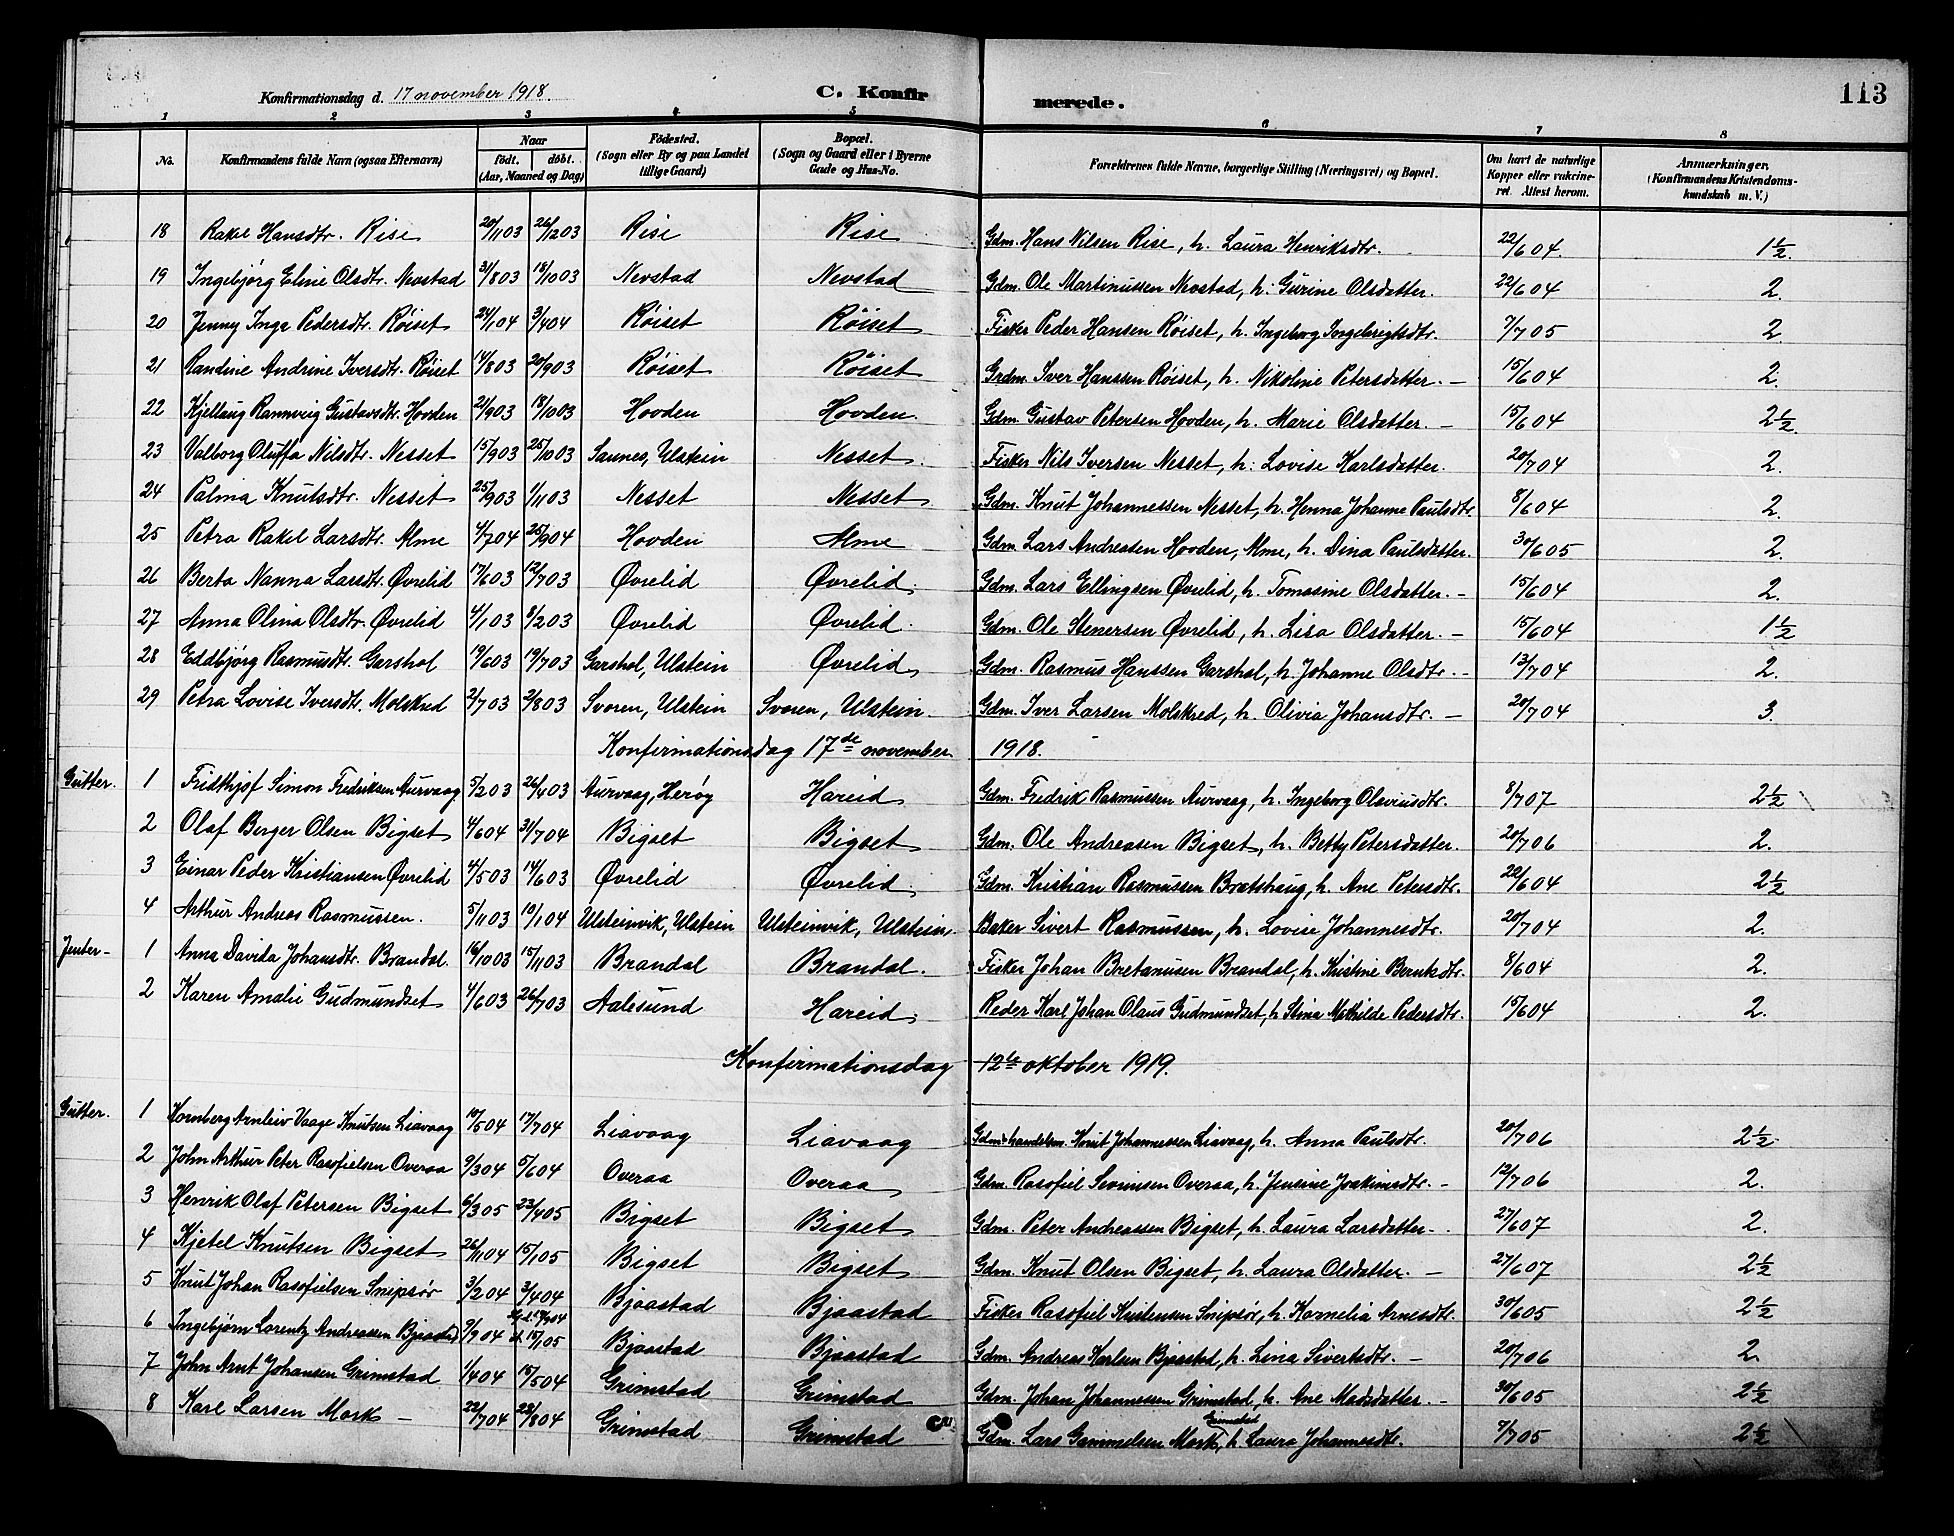 Konfirmationsdag d. 17 november 1918. C. Konfirmerede. 113
1 2 3 4 5 6 7 8
No. Konfirmandens fulde Navn (ogsaa Efternavn) Naar födt. döbt. (Aar, Maaned og Dag) Födested. (Sogn eller By og paa Landet tillige Gaard) Bopæl. (Sogn og Gaard eller i Byerne Gade og Hus-No. Forældrenes fulde Navne, borgerlige Stilling (Næringsvei) og Bopæl. Om havt de naturlige Kopper eller vakcineret. Attest herom. Anmærkninger, (Konfirmandens Kristendomskundskab m. V.)
18 Rakel Hansdtr. Rise 20/1103 26/1203 Rise Rise Gdm. Hans Nilsen Rise, h. Laura Henriksdtr. 22/604. 1 1/2.
19 Ingebjørg Eline Olsdtr. Nevstad 31/803 18/1003 Nevstad Nevstad Gdm. Ole Martinussen Nevstad, h. Gurine Olsdatter. 22/604 2.
20 Jenny Inga Pedersdtr. Röiset 24/104 3/404 Röiset Röiset Fisker Peder Hansen Röiset, h. Ingeborg Ingebrigtsdtr. 7/705 2
21 Randine Andrine Iversdtr. Röiset 14/803 20/903 Röiset Röiset Grdm. Iver Hanssen Röiset, h. Nikoline Petersdatter. — 15/604 2.
22 Kjellaug Rannveig Gustavsdtr. Hovden 21/903 18/1003 Hovden Hovden. Gdm. Gustav Petersen Hovden, h. Marie Olsdatter. — 15/604 2 1/2.
23 Valborg Oluffa Nilsdtr. Nesset 15/903 25/1003 Saunes, Ulstein Nesset. Fisker Nils Iversen Nesset, h. Lovise Karlsdatter. 20/704 2.
24 Palma Knutsdtr. Nesset 25/903 1/1103 Nesset Nesset Gdm. Knut Johannessen Nesset, h. Henna Johanne Paulsdtr. 8/604 2.
25 Petra Rakel Larsdtr. Alme 4/704 25/904 Hovden Alme Gdm. Lars Andreasen Hovden, Alme, h. Dina Paulsdatter. 30/605 2.
26 Berta Nanna Larsdtr. Øvrelid 17/603 12/703 Øvrelid Øvrelid. Gdm. Lars Ellingsen Øvrelid, h. Tomasine Olsdatter. — 15/604 2.
27 Anna Olina Olsdtr. Øvrelid 4/103 8/203 Øvrelid Øvrelid. Gdm. Ole Stenersen Øvrelid, h. Lisa Olsdatter. — 15/604 1 1/2
28 Eddbjørg Rasmusdtr. Garshol 19/603 19/703 Garshol, Ulstein Øvrelid Gdm. Rasmus Hanssen Garshol, h. Johanne Olsdtr. - 13/704 2.
29 Petra Lovise Iversdtr. Molskred 2/703 2/803 Svoren, Ulstein Svoren, Ulstein. Gdm. Iver Larsen Molskred, h. Olivia Johansdtr. — 20/704 3.
Konfirmationsdag 17de november 1918.
Gutter. 1 Fridthjof Simon Fredriksen Aurvaag 5/203 26/403 Aurvaag, Herøy Hareid Gdm. Fredrik Rasmussen Aurvaag, h. Ingeborg Olaviusdtr. 8/707 2 1/2
2 Olaf Berger Olsen Bigset 4/604 31/704 Bigset Bigset Gdm. Ole Andreasen Bigset, h. Betty Petersdatter. 20/706 2.
3 Einar Peder Kristiansen Øvrelid 4/503 14/603 Øvrelid Øvrelid. Gdm. Kristian Rasmussen Bratshaug, h. Ane Petersdtr. 22/604 2 1/2
4 Arthur Andreas Rasmussen. 5/1103 10/104 Ulsteinvik, Ulstein Ulsteinvik, Ulstein. Baker Sivert Rasmussen, h. Lovise Johannesdtr. 20/704 2.
Jenter - 1 Anna Davida Johansdtr. Brandal. 16/1003 15/1103 Brandal Brandal. Fisker Johan Bretanusen Brandal, h. Kristine Berntsdtr. 8/604 2.
2 Karen Amalie Gudmundset 4/603 26/703 Aalesund Hareid. Reder Karl Johan Olaus Gudmundset, h. Stina Mathilde Pedersdtr. 15/604 2.
Konfirmationsdag 12te oktober 1919.
Gutter. 1 Kornberg Arnleiv Vaage Knutsen Liavaag 10/504 17/704 Liavaag Liavaag Gdm. & handelsm. Knut Johannessen Liavaag, h. Anna Paulsdtr. 20/706 2 1/2
2 John Arthur Peter Rasofielsen Overaa 9/304 5/604 Overaa Overaa Gdm. Rasofiel Sivertsen Overaa, h. Jensine Joakimsdtr. - 12/706 2.
3 Henrik Olaf Petersen Bigset 6/305 23/405 Bigset Bigset Gdm. Peter Andreassen Bigset, h. Laura Larsdatter - 27/607 2.
4 Kjetel Knutsen Bigset 26/1104 15/105 Bigset Bigset Gdm. Knut Olsen Bigset, h. Laura Olsdatter. — 27/607 2 1/2
5 Knut Johan Rasofielsen Snipsør 3/204 3/404 Bjaastad Bjaastad Fisker Rasofiel Kristensen Snipsør, h. Kornelia Arnesdtr. 30/605 2 1/2
6 Ingebjørn Lorentz Andreassen Bjaastad 9/904 15/105 Bjaastad Bjaastad Gdm. Andreas Karlsen Bjaastad, h. Lina Sivertsdtr. — 20/706 2.
7 John Arnt Johansen Grimstad 1/404 15/504 Grimstad Grimstad Gdm. Johan Johannessen Grimstad, h. Ane Madsdatter. - 30/605 2 1/2
8 Karl Larsen Mork — 22/704 28/804 Grimstad Grimstad Gdm. Lars Gammelsen Mork, Grimstad h. Laura Johannesdtr. 7/705 2 1/2